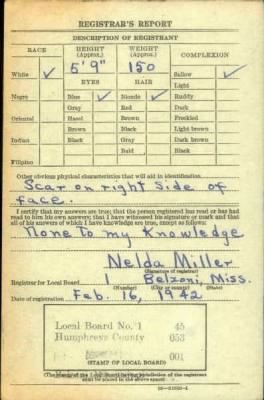 REGISTRAR'S REPORT
DESCRIPTION OF REGISTRANT
RACE HEIGHT (Approx.) WEIGHT (Approx.) COMPLEXION
White ✓ 5' 9" 150 Sallow ✓
EYES HAIR Light
Negro Blue ✓ Blonde ✓ Ruddy
Gray Red Dark
Oriental Hazel Brown Freckled
Brown Black Light brown
Indian Black Gray Dark brown
Bald Black
Filipino
Other obvious physical characteristics that will aid in identification
Scar on right side of
face.
I certify that my answers are true; that the person registered has read or has had
read to him his own answers; that I have witnessed his signature or mark and that
all of his answers of which I have knowledge are true, except as follows:
None to my Knowledge
Nelda Miller
(Signature of registrar)
Registrar for Local Board 1 Belzoni, Miss.
(Number) (City or county) (State)
Date of registration Feb. 16, 1942
Local Board No. 1 45
Humphreys County 053
001
(STAMP OF LOCAL BOARD)
of the Local Board having jurisdiction of the registrant
shall be placed in the above space)